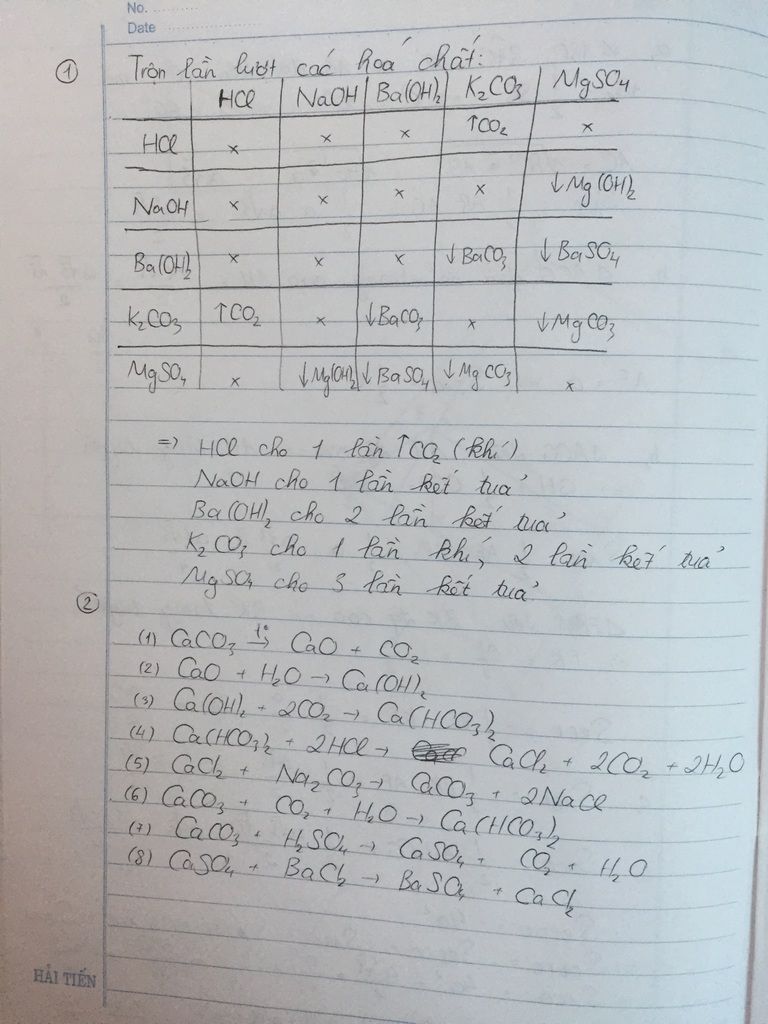 No.
Date
① Trộn lần lượt các hoá chất:
HCl NaOH Ba(OH)₂ K₂CO₃ MgSO₄
HCl x x x ↑CO₂ x
NaOH x x x x ↓Mg(OH)₂
Ba(OH)₂ x x x ↓BaCO₃ ↓BaSO₄
K₂CO₃ ↑CO₂ x ↓BaCO₃ x ↓MgCO₃
MgSO₄ x ↓Mg(OH)₂ ↓BaSO₄ ↓MgCO₃ x
=> HCl cho 1 lần ↑CO₂ (khí)
NaOH cho 1 lần kết tuả
Ba(OH)₂ cho 2 lần kết tuả
K₂CO₃ cho 1 lần khí, 2 lần kết tuả
MgSO₄ cho 3 lần kết tuả
②
(1) CaCO₃ t°→ CaO + CO₂
(2) CaO + H₂O → Ca(OH)₂
(3) Ca(OH)₂ + 2CO₂ → Ca(HCO₃)₂
(4) Ca(HCO₃)₂ + 2HCl → CaCl₂ + 2CO₂ + 2H₂O
(5) CaCl₂ + Na₂CO₃ → CaCO₃ + 2NaCl
(6) CaCO₃ + CO₂ + H₂O → Ca(HCO₃)₂
(7) CaCO₃ + H₂SO₄ → CaSO₄ + CO₂ + H₂O
(8) CaSO₄ + BaCl₂ → BaSO₄ + CaCl₂
HẢI TIẾN